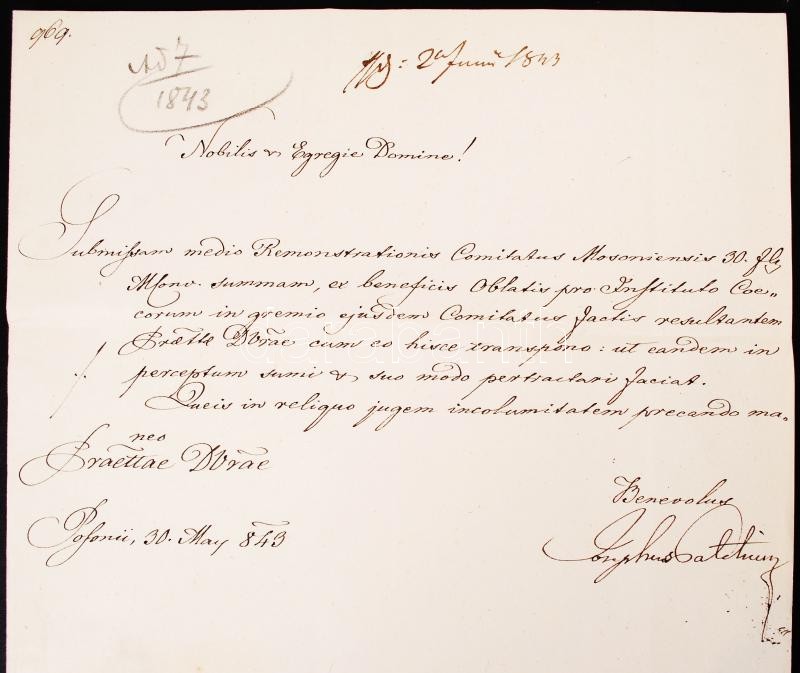 969.
Ad 7
1843
2a Junii 1843
Nobilis & Egregie Domine!
Submissam medio Remonstrationis Comitatus Mosoniensis 30. fl
Msonv. summam, ex beneficis Oblatis pro Instituto Coe„
corum in gremio ejusdem Comitatus factis resultantem
Praette DVrae cum eo hisce transpono: ut eandem in
perceptum sumi & suo modo pertractari faciat.
Queis in reliquo jugem incolumitatem precando ma„
neo
Praettae DVrae
Benevolus
Posonii, 30. May 843
Josephus Palatinus